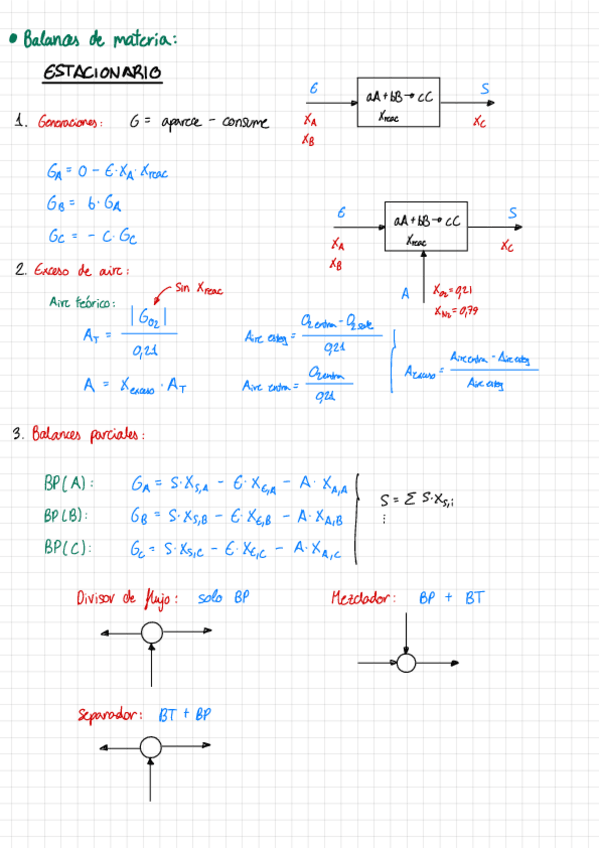 • Balances de materia:
ESTACIONARIO
E
aA + bB → cC
Xreac
S
XA
XB
XC
1. Generaciones: G = aparece - consume
GA = 0 - E · XA · Xreac
GB = b · GA
GC = - C · GC
E
aA + bB → cC
Xreac
S
XA
XB
XC
A
XO2 = 0,21
XN2 = 0,79
2. Exceso de aire:
Sin Xreac
Aire teórico:
AT = |GO2| / 0,21
A = Xexceso · AT
Aire esteq = O2 entra - O2 sale / 0,21
Aire entra = O2 entra / 0,21
Aexceso = Aire entra - Aire esteq / Aire esteq
3. Balances parciales:
BP(A): GA = S · XS,A - E · XE,A - A · XA,A
BP(B): GB = S · XS,B - E · XE,B - A · XA,B
BP(C): GC = S · XS,C - E · XE,C - A · XA,C
S = Σ S · XS,i
⋮
Divisor de flujo: solo BP
Mezclador: BP + BT
Separador: BT + BP